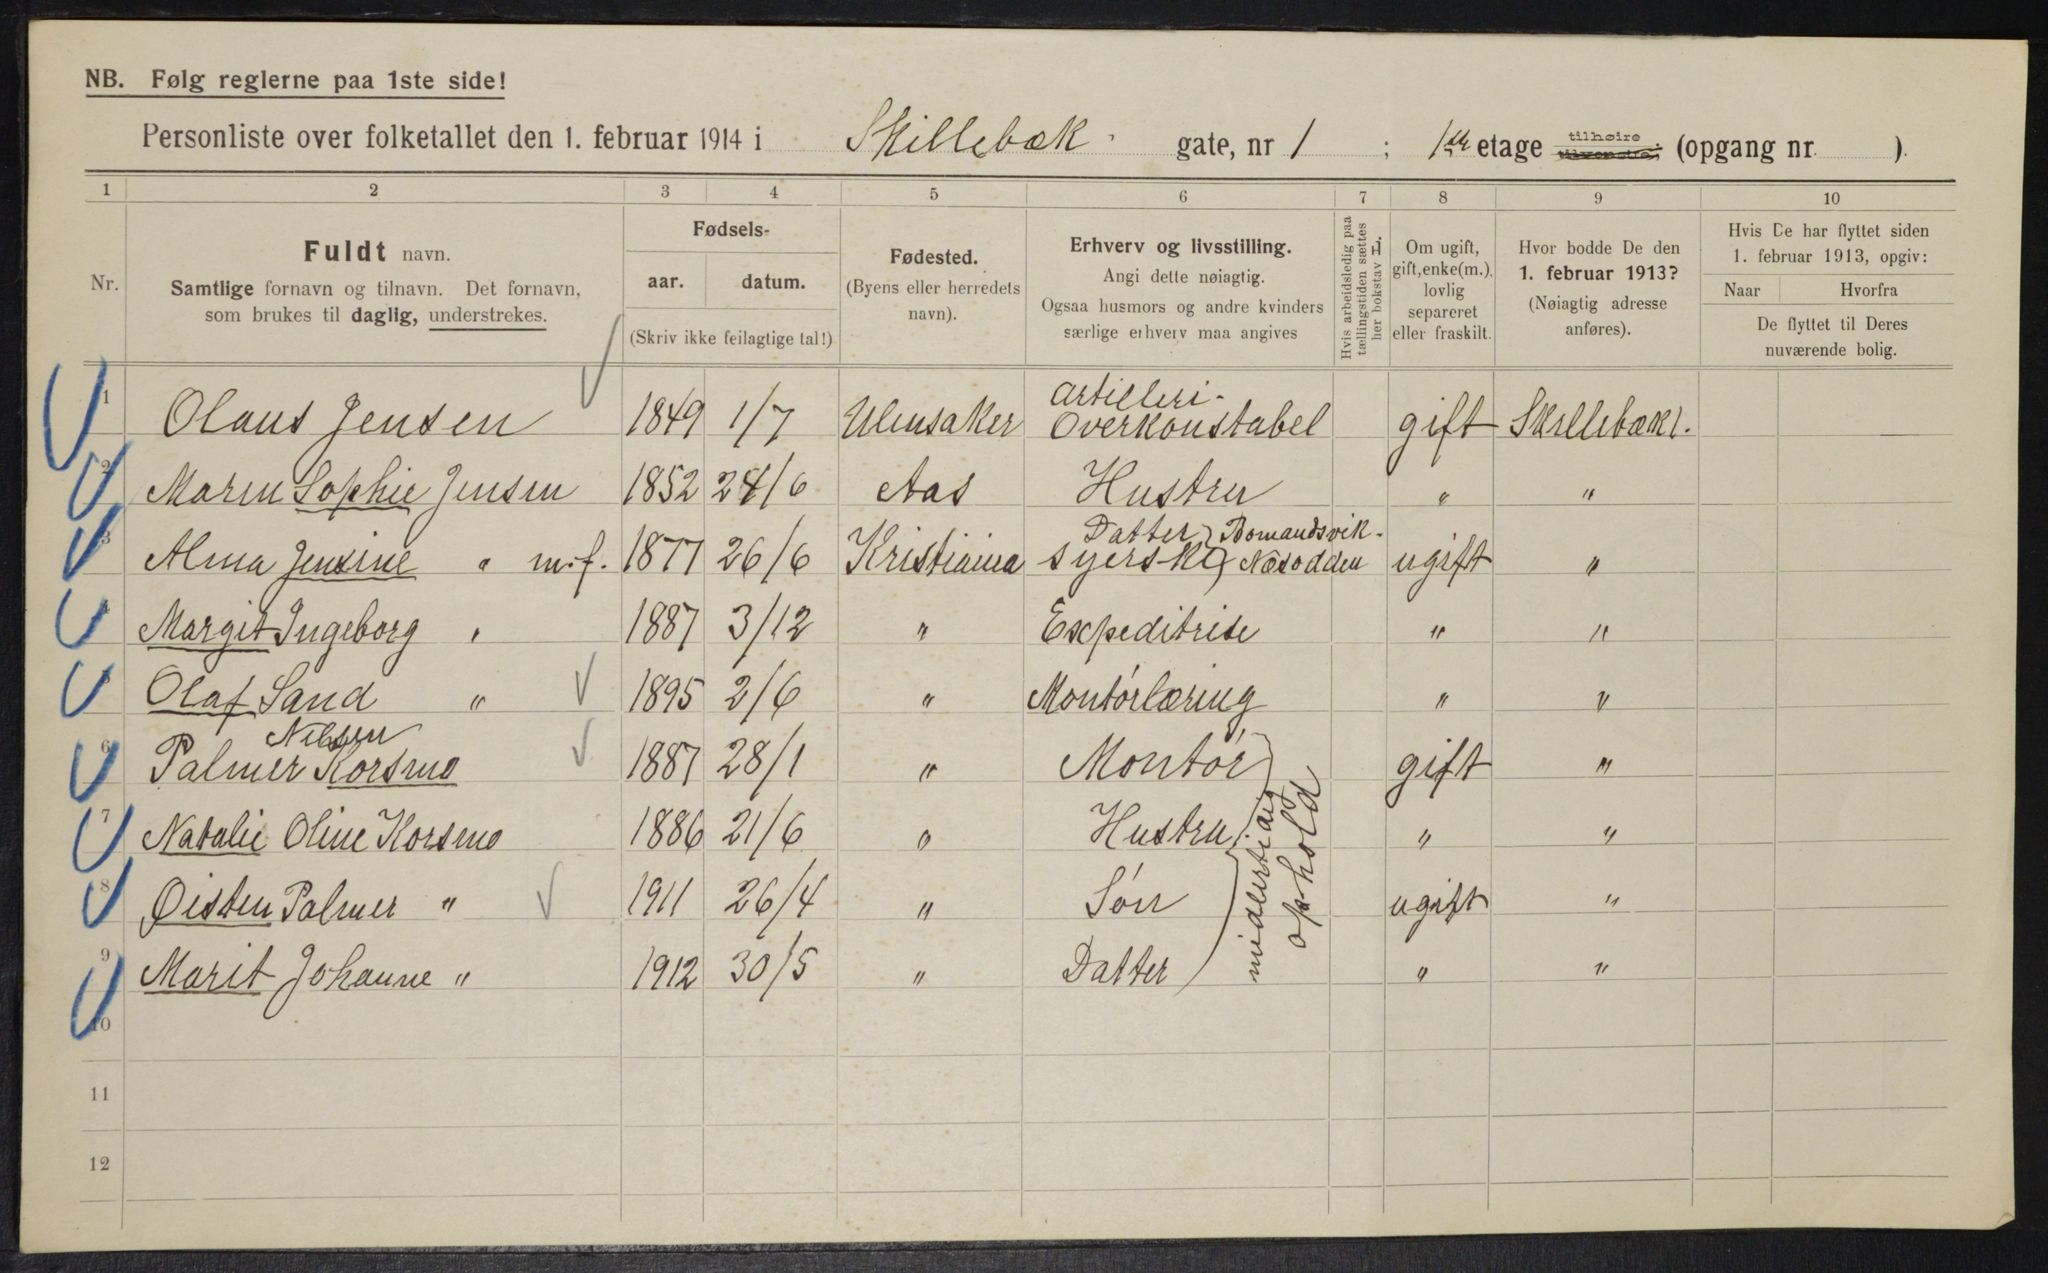 NB. Følg reglerne paa 1ste side!
Personliste over folketallet den 1. februar 1914 i Skillebæk gate, nr 1 ; 1ste etage tilhøire tilvenstre, (opgang nr. ).
1 2 3 4 5 6 7 8 9 10
Nr.
Fuldt navn.
Samtlige fornavn og tilnavn. Det fornavn,
som brukes til daglig, understrekes.
Fødsels-
aar. datum.
(Skriv ikke feilagtige tal!)
Fødested.
(Byens eller herredets
navn).
Erhverv og livsstilling.
Angi dette nøiagtig.
Ogsaa husmors og andre kvinders
særlige erhverv maa angives
Hvis arbeidsledig paa
tællingstiden sættes
her bokstav L.
Om ugift,
gift, enke(m.),
lovlig
separeret
eller fraskilt.
Hvor bodde De den
1. februar 1913?
(Nøiagtig adresse
anføres).
Hvis De har flyttet siden
1. februar 1913, opgiv:
Naar Hvorfra
De flyttet til Deres
nuværende bolig.
1 Olaus Jensen 1849 1/7 Ulensaker Artilleri- Overkonstabel gift Skillebæk 1.
2 Maren Sophie Jensen 1852 24/6 Aas Hustru " "
3 Alma Jensine " m.f. 1877 26/6 Kristiania Datter syerske Bomandsvik- Næsodden ugift "
4 Margit Ingeborg " 1887 3/12 " Expeditrise " "
5 Olaf Sand " 1895 2/6 " Montørlæring " "
6 Palmer Nilsen Korsmo 1887 28/1 " Montør gift "
7 Natalie Oline Korsmo 1886 21/6 " Hustru " "
8 Øisten Palmer " 1911 26/4 " Søn ugift "
9 Marit Johanne " 1912 30/5 " Datter " "
midlertidig
ophold
10
11
12